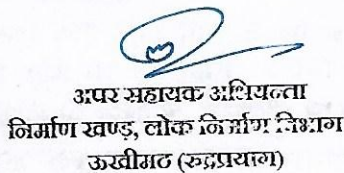 अपर सहायक अभियन्ता
निर्माण खण्ड, लोक निर्माण विभाग
ऊखीमठ (रुद्रप्रयाग)